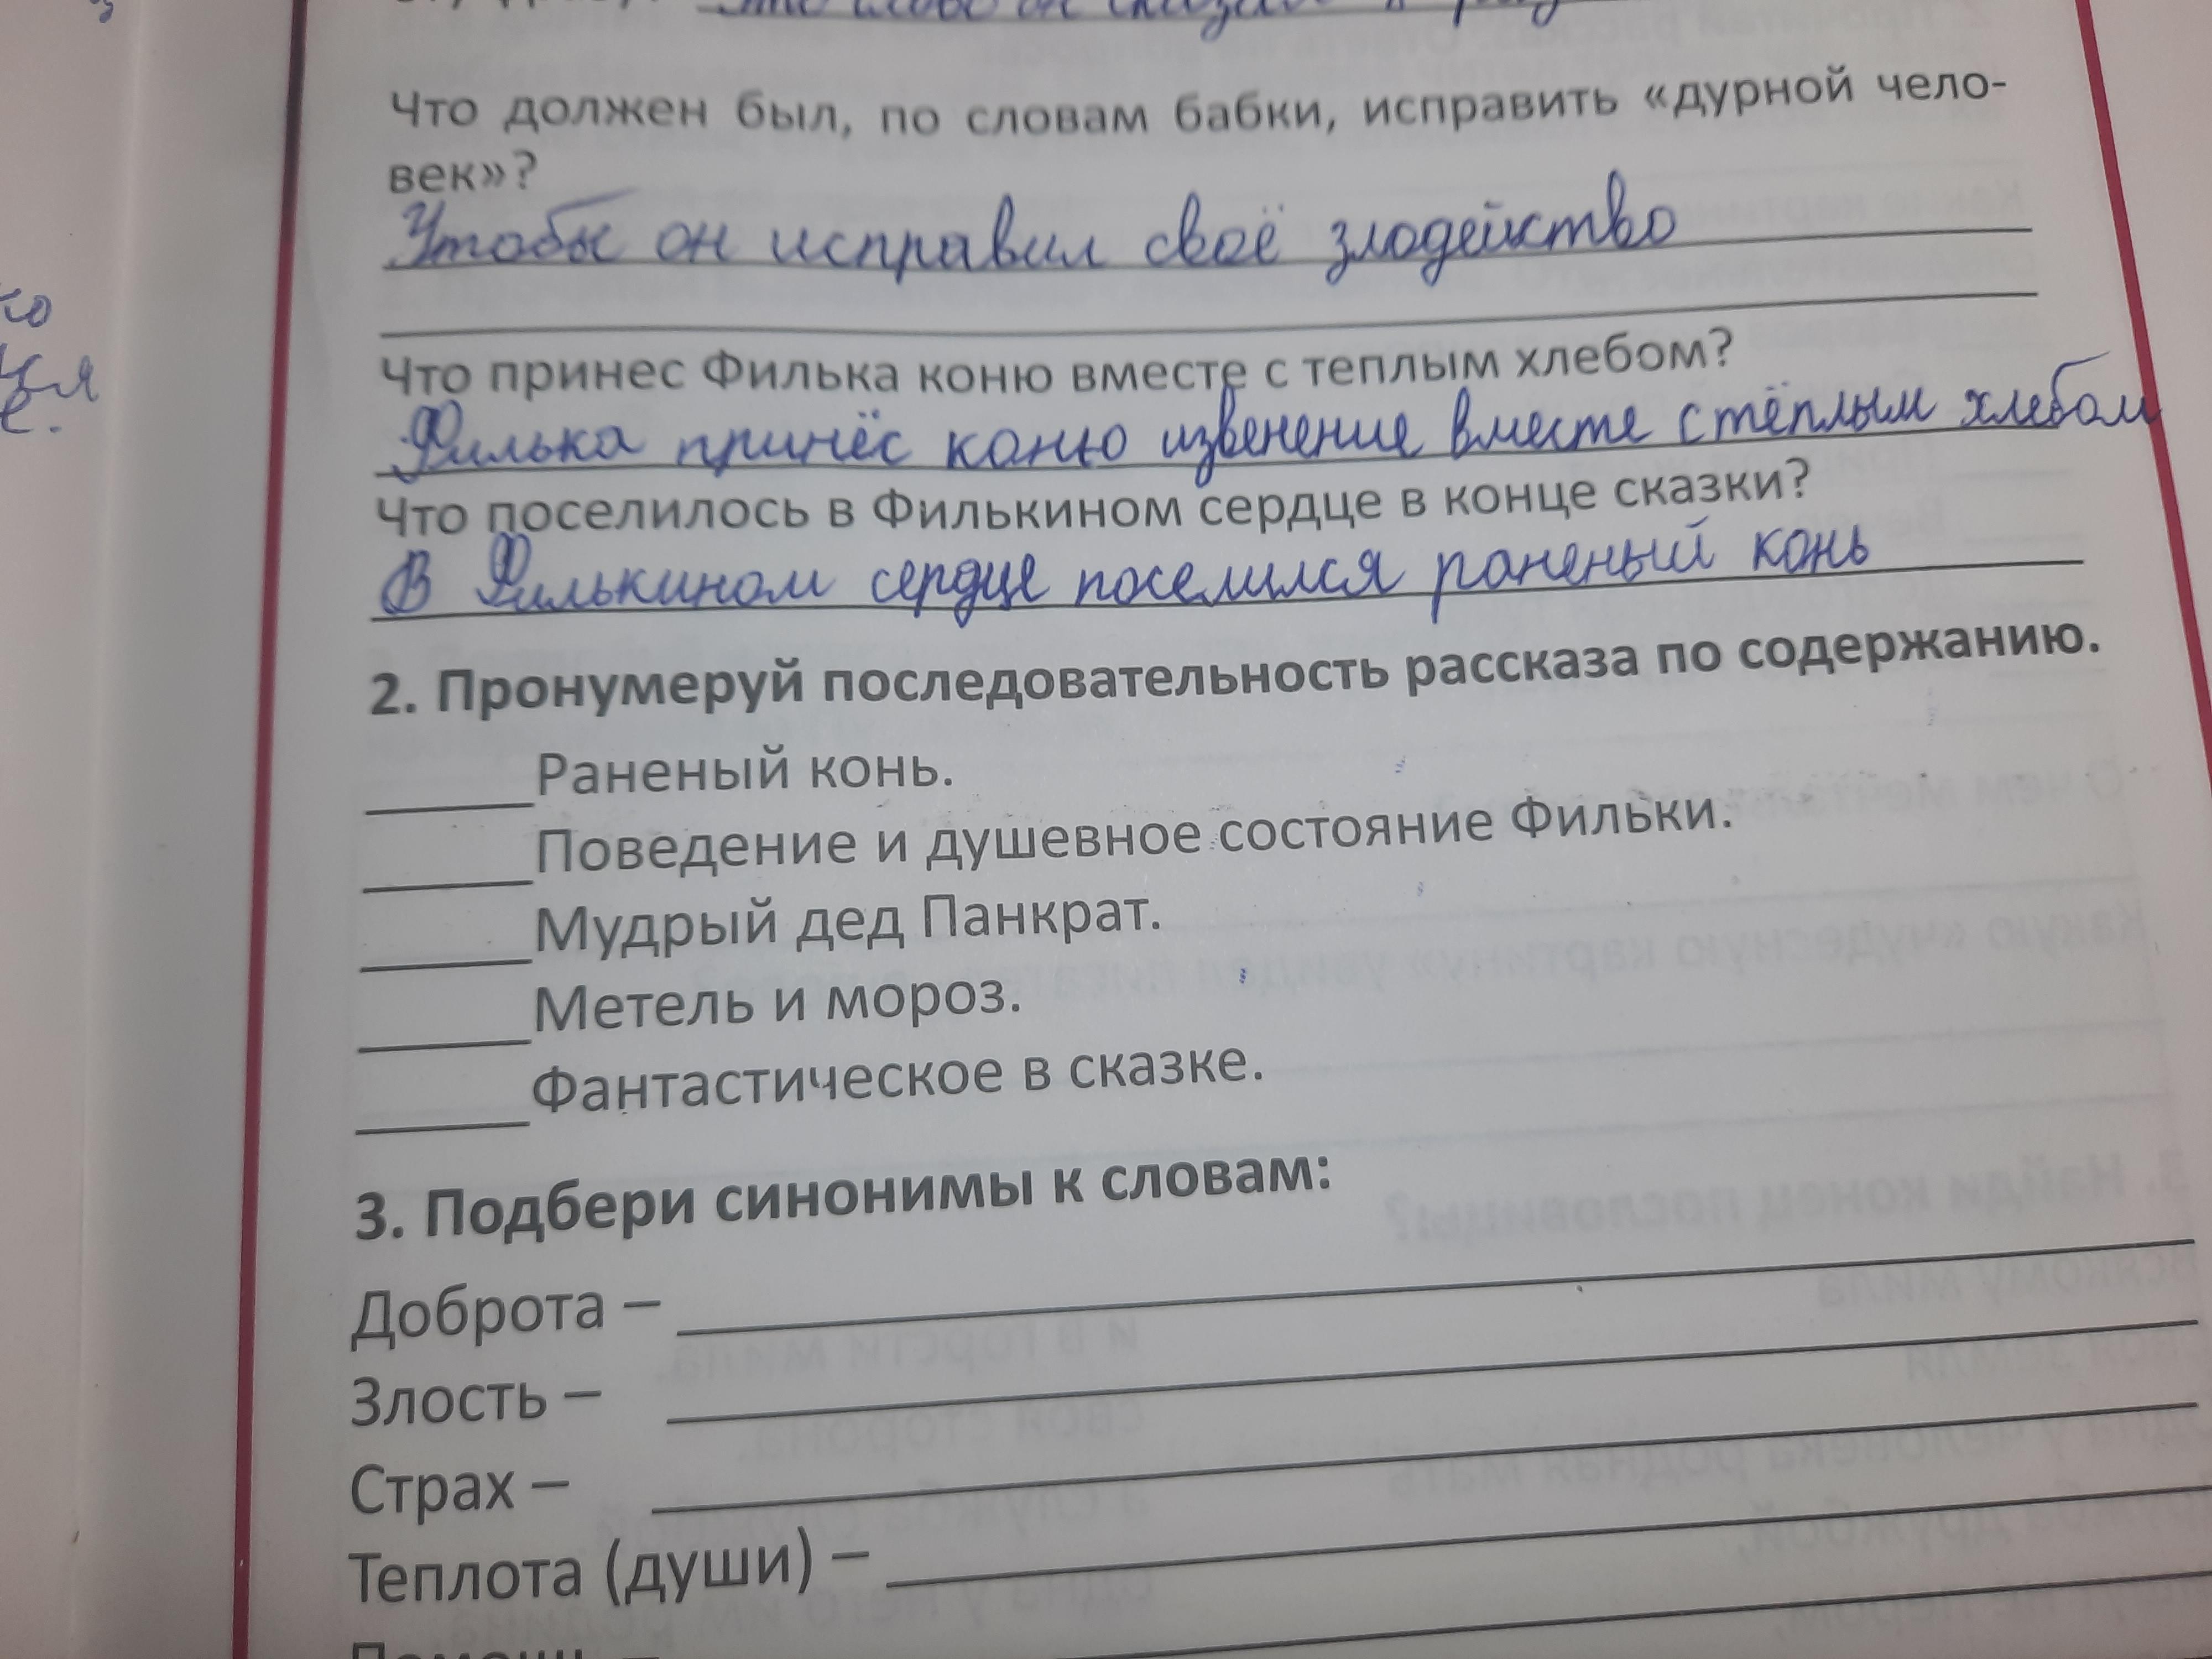 Что должен был, по словам бабки, исправить «дурной чело-
век»?
Чтобы он исправил своё злодейство
Что принес Филька коню вместе с теплым хлебом?
Филька принёс коню извенение вместе с тёплым хлебом
Что поселилось в Филькином сердце в конце сказки?
В Филькином сердце поселился раненый конь
2. Пронумеруй последовательность рассказа по содержанию.
Раненый конь.
Поведение и душевное состояние Фильки.
Мудрый дед Панкрат.
Метель и мороз.
Фантастическое в сказке.
3. Подбери синонимы к словам:
Доброта –
Злость –
Страх –
Теплота (души) –